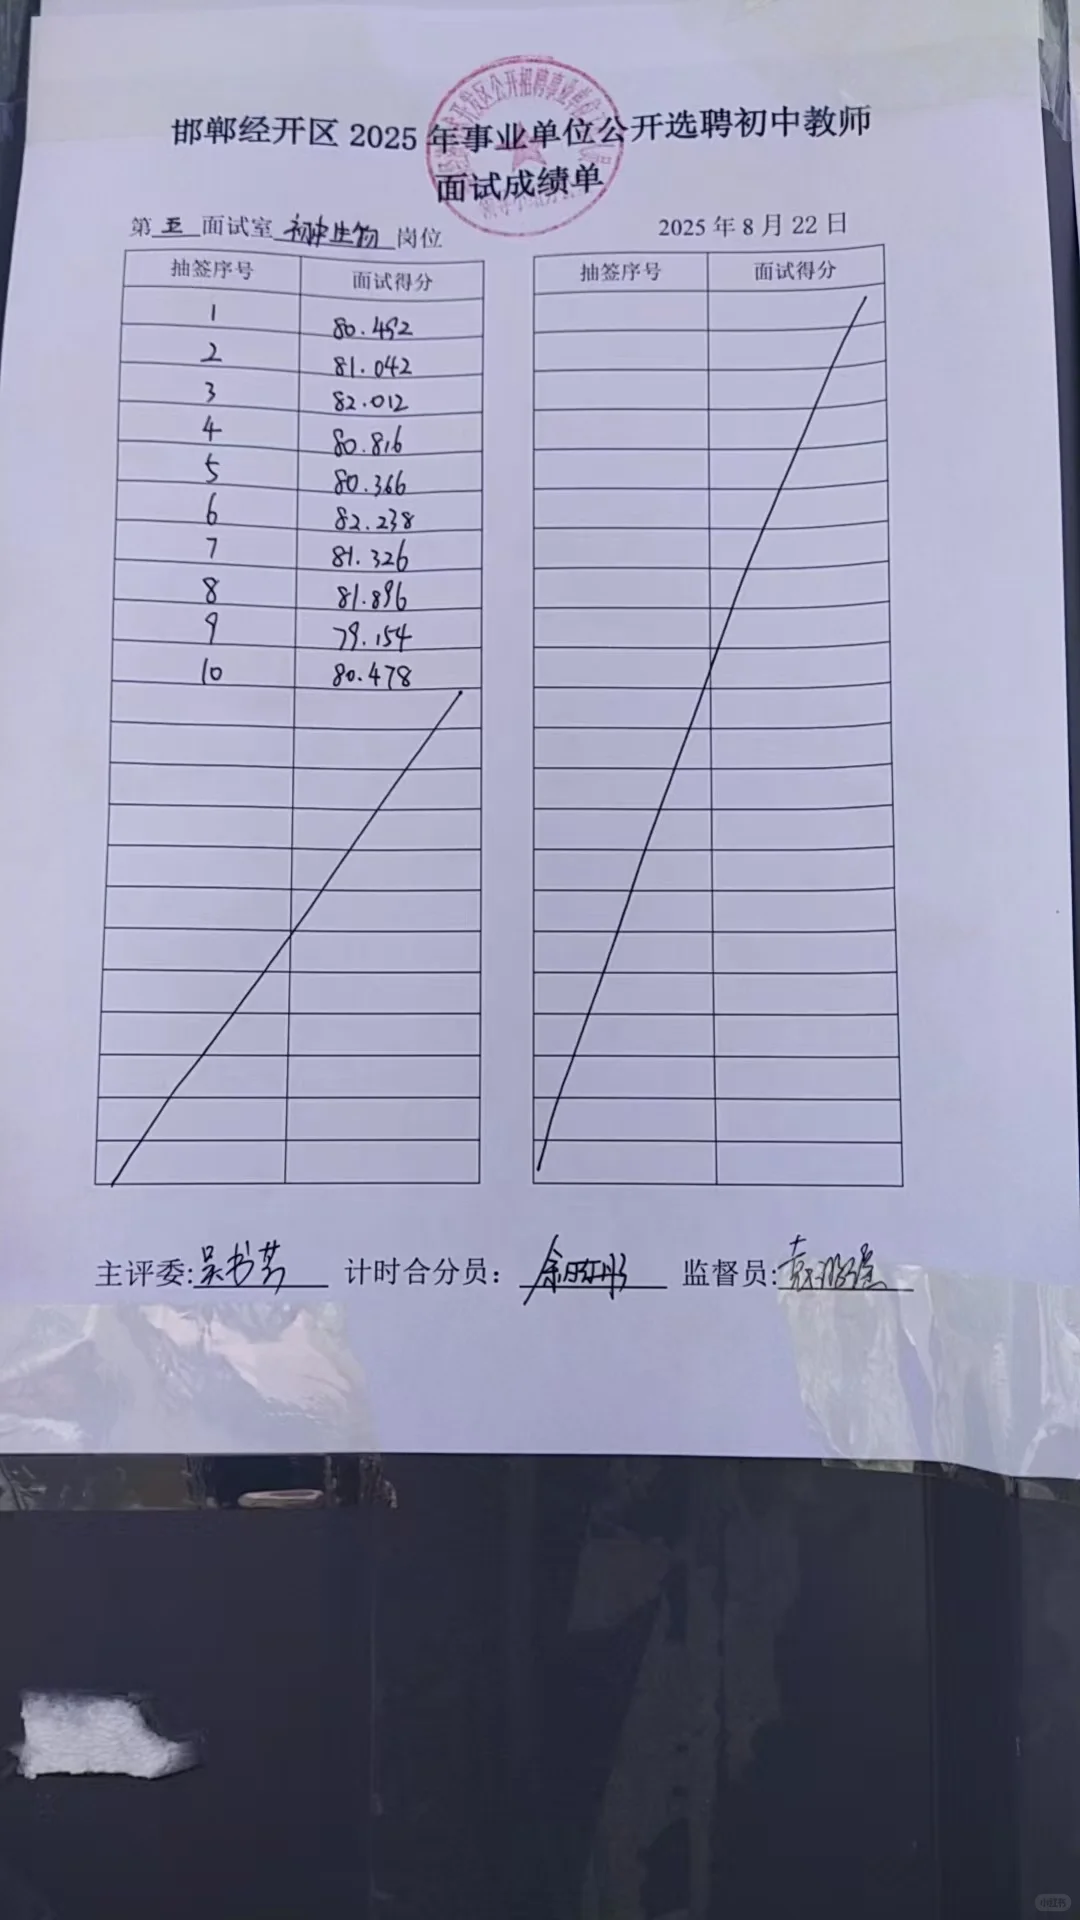 邯郸经开区 2025 年事业单位公开选聘初中教师
面试成绩单
第五面试室初中生物岗位 2025 年 8 月 22 日
抽签序号 面试得分 抽签序号 面试得分
1 80.492
2 81.042
3 82.012
4 80.816
5 80.366
6 82.238
7 81.326
8 81.896
9 79.154
10 80.478
主评委: 计时合分员： 监督员:
小红书